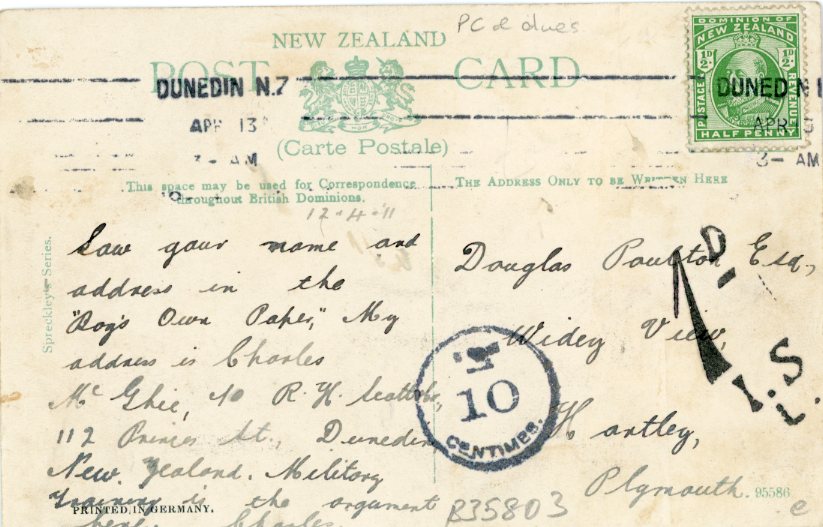 PC & dues
NEW ZEALAND
POST CARD
(Carte Postale)
DUNEDIN N.Z
APR 13
3- AM
DOMINION OF
NEW ZEALAND
½D ½D
POSTAGE REVENUE
HALF PENNY
DUNEDIN
APR
3- AM
This space may be used for Correspondence
throughout British Dominions.
THE ADDRESS ONLY TO BE WRITTEN HERE
12-4-11
Spreckley's Series.
Saw your name and
address in the
"Boy's Own Paper," My
address is Charles
Mc Ghie, 40 R. H. Scott &
112 Princes St., Dunedin
New Zealand. Military
Training is the argument
here. Charles
Douglas Poulton Esq,
Widey View,
Hartley,
Plymouth.
T
10
CENTIMES.
D
1
I.S.
L.
PRINTED IN GERMANY.
B35803
95586
e